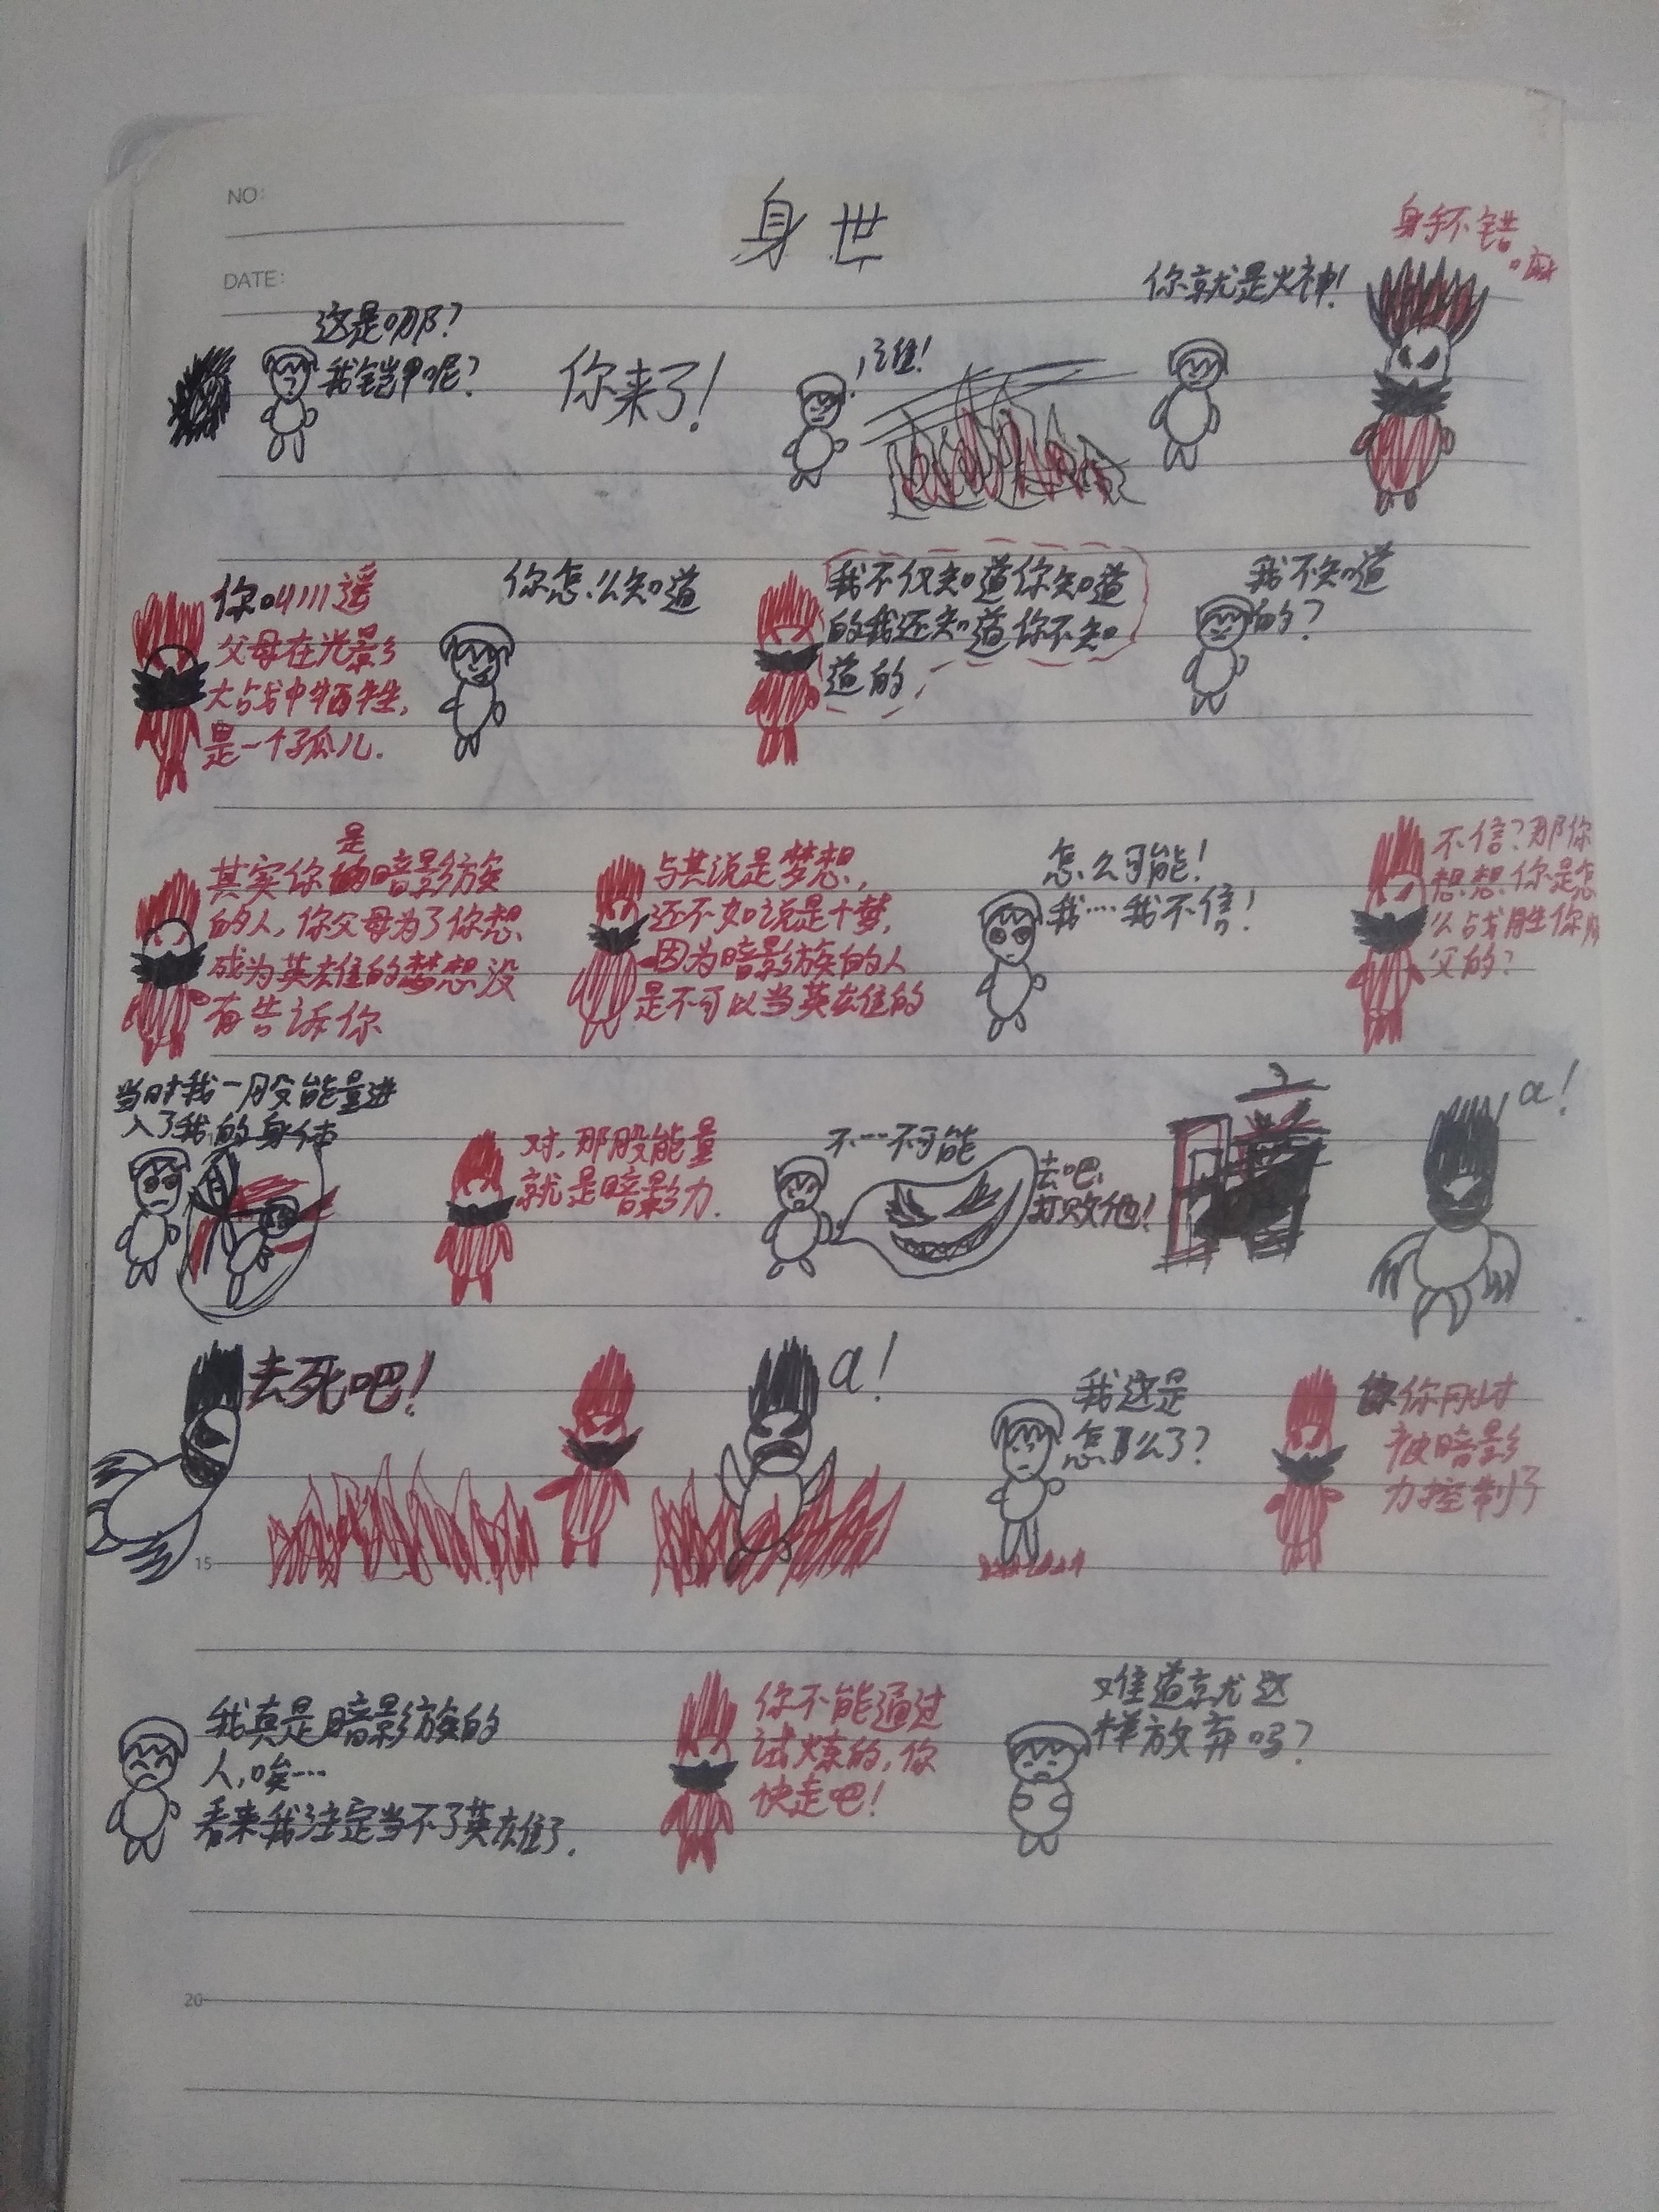 NO:
身世
DATE:
这是哪?
我铠甲呢?
你来了!
谁!
你就是火神!
身手不错
嘛
你叫川遥
父母在光影
大战中牺牲,
是一个孤儿.
你怎么知道
我不仅知道你知道
的我还知道你不知
道的,
我不知道
的?
是
其实你暗影族
的人,你父母为了你想
成为英雄的梦想没
有告诉你
与其说是梦想,
还不如说是个梦,
因为暗影族的人
是不可以当英雄的
怎么可能!
我……我不信!
不信?那你
想想你是怎
么战胜你师
父的?
当时我一股能量进
入了我的身体
对,那股能量
就是暗影力.
不……不可能
去吧,
打败他!
a!
去死吧!
a!
我这是
怎么了?
你刚才
被暗影
力控制了
15
我真是暗影族的
人,唉…
看来我注定当不了英雄了.
你不能通过
试炼的,你
快走吧!
难道就这
样放弃吗?
20